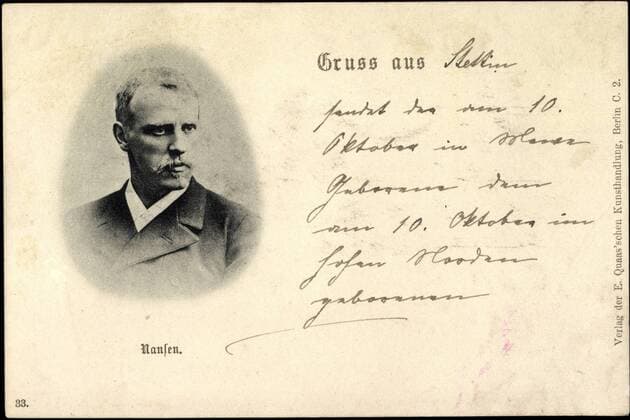 Gruss aus Stettin
sendet der am 10.
Oktober in Mewe
Geborene dem
am 10. Oktober im
hohen Norden
geborenen
Nansen.
33.
Verlag der E. Quaas'schen Kunsthandlung, Berlin C. 2.